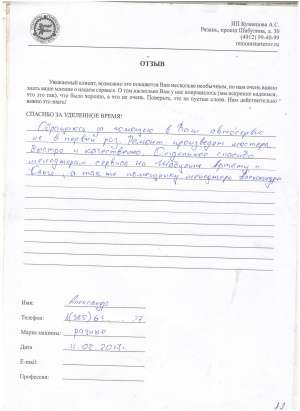 ИП Кузнецова А.С.
Рязань, проезд Шабулина, д. 30
(4912) 99-40-99
remontstarterov.ru
ОТЗЫВ
Уважаемый клиент, возможно это покажется Вам несколько необычным, но нам очень важно
знать ваше мнение о нашем сервисе. О том насколько Вам у нас понравилось (мы искренне надеемся,
что это так), что было хорошо, а что не очень. Поверьте, это не пустые слова. Нам действительно
важно это знать!
СПАСИБО ЗА УДЕЛЕННОЕ ВРЕМЯ!
Обращаюсь за помощью в Ваш автосервис
не в первый раз. Ремонт производят мастера
быстро и качественно. Отдельное спасибо
менеджерам сервиса на Шабулина Артёму и
Ольге, а так же помощнику менеджера Александре
Имя: Александр
Телефон:
Марка машины: разные
Дата 11.02.2017г.
E-mail:
Профессия: